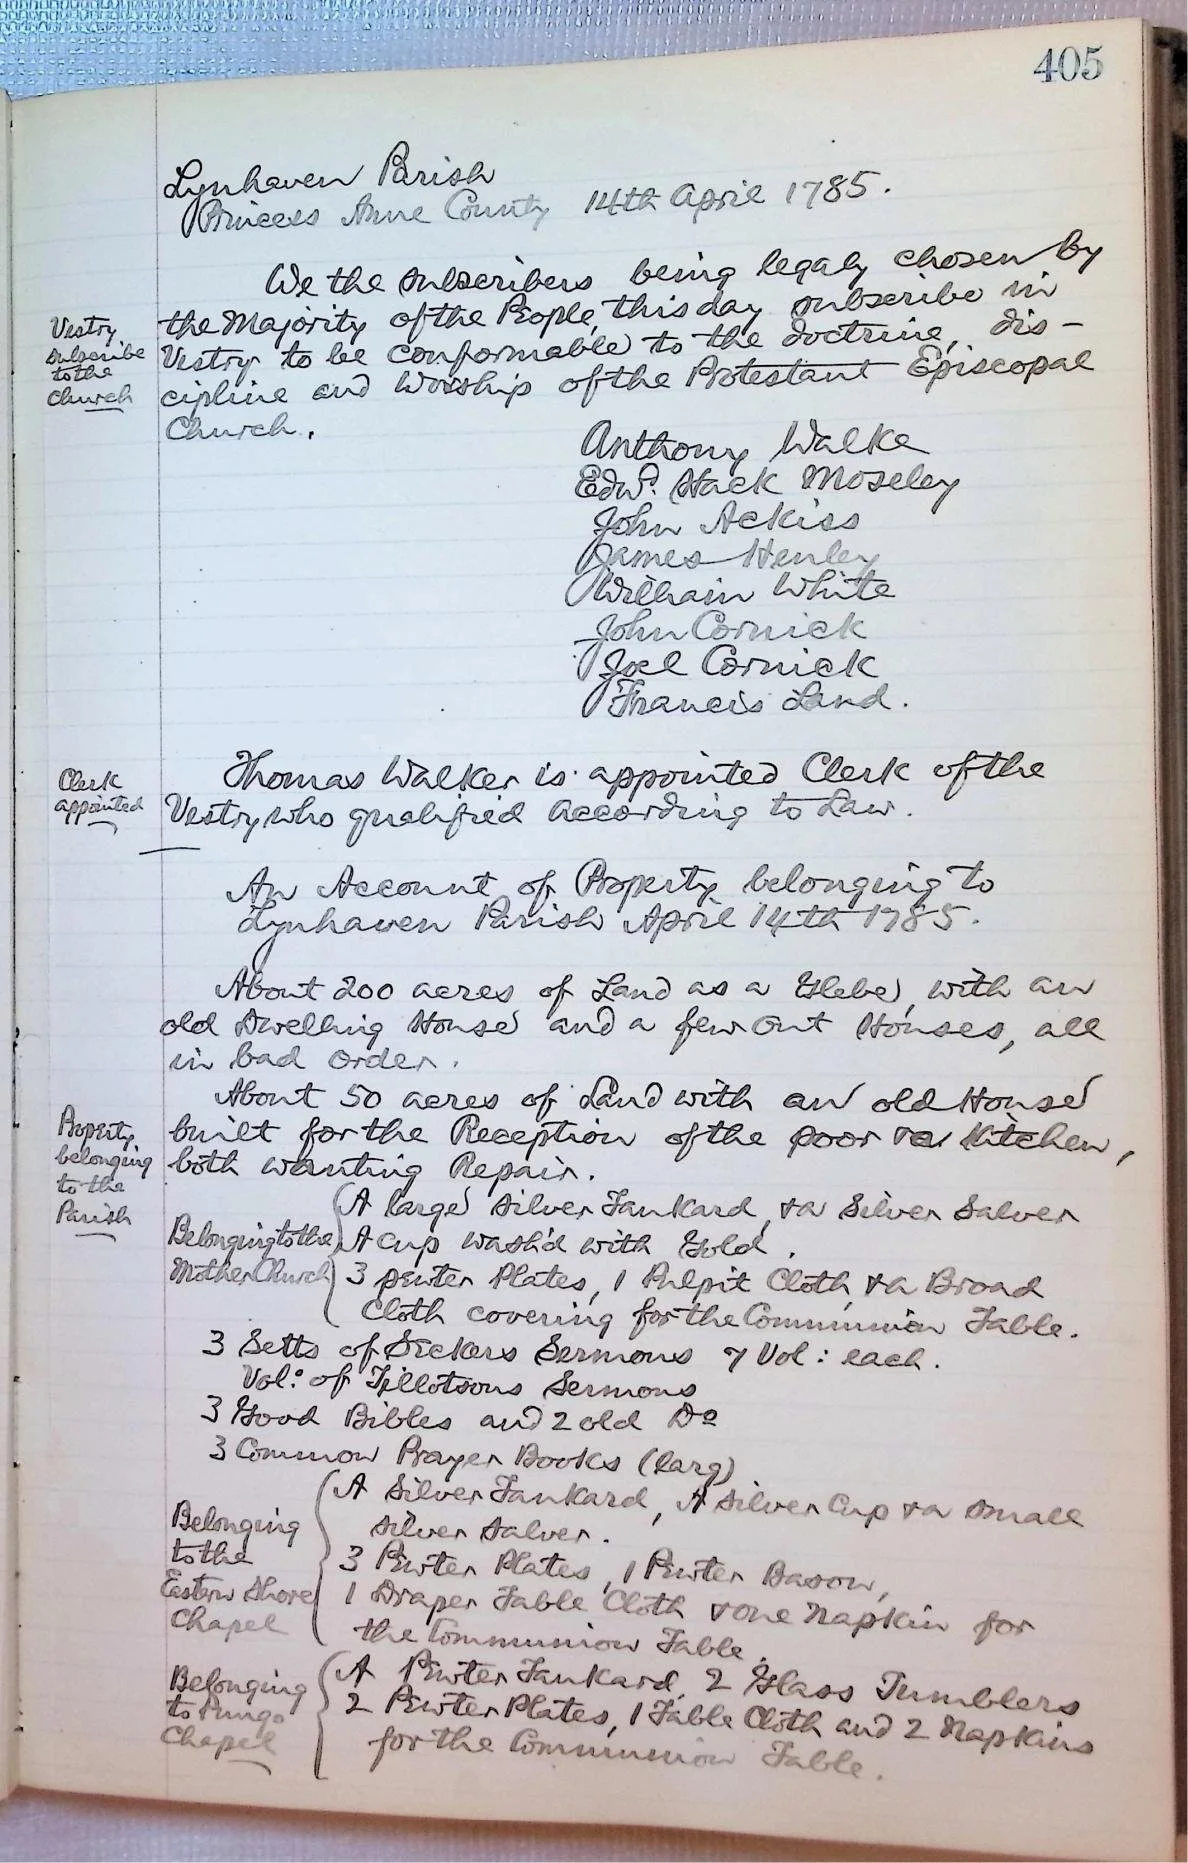 405
Lynhaven Parish
Princess Anne County 14th April 1785.
We the subscribers being legaly chosen by
the Majority of the People, this day subscribe in
Vestry to be conformable to the doctrine, dis-
cipline and Worship of the Protestant Episcopal
Church.
Vestry
subscribe
to the
church
Anthony Walke
Edwd. Hack Moseley
John Ackiss
James Henley
William White
John Cornick
Joel Cornick
Francis Land.
Clerk
appointed
Thomas Walker is appointed Clerk of the
Vestry who qualified According to Law.
An Account of Property belonging to
Lynhaven Parish April 14th 1785.
About 200 acres of Land as a Glebe, with an
old Dwelling House and a few Out Houses, all
in bad order.
About 50 acres of Land with an old House
built for the Reception of the poor & a Kitchen,
both wanting Repair.
Property
belonging
to the
Parish
Belonging to the
Mother Church
A large Silver Tankard, & a Silver Salver
A Cup wash'd with Gold.
3 pewter Plates, 1 Pulpit Cloth, & a Broad
Cloth covering for the Communion Table.
3 Setts of Sickers Sermons 7 Vol: each.
Vol: of Tillotsons Sermons
3 Good Bibles and 2 old Do
3 Common Prayer Books (larg)
Belonging
to the
Eastern Shore
Chapel
A Silver Tankard, A Silver Cup & a small
silver salver.
3 Pewter Plates, 1 Pewter Bason,
1 Draper Table Cloth & one Napkin for
the Communion Table.
Belonging
to Pungo
Chapel
A Pewter Tankard, 2 Glass Tumblers
2 Pewter Plates, 1 Table Cloth and 2 Napkins
for the Communion Table.